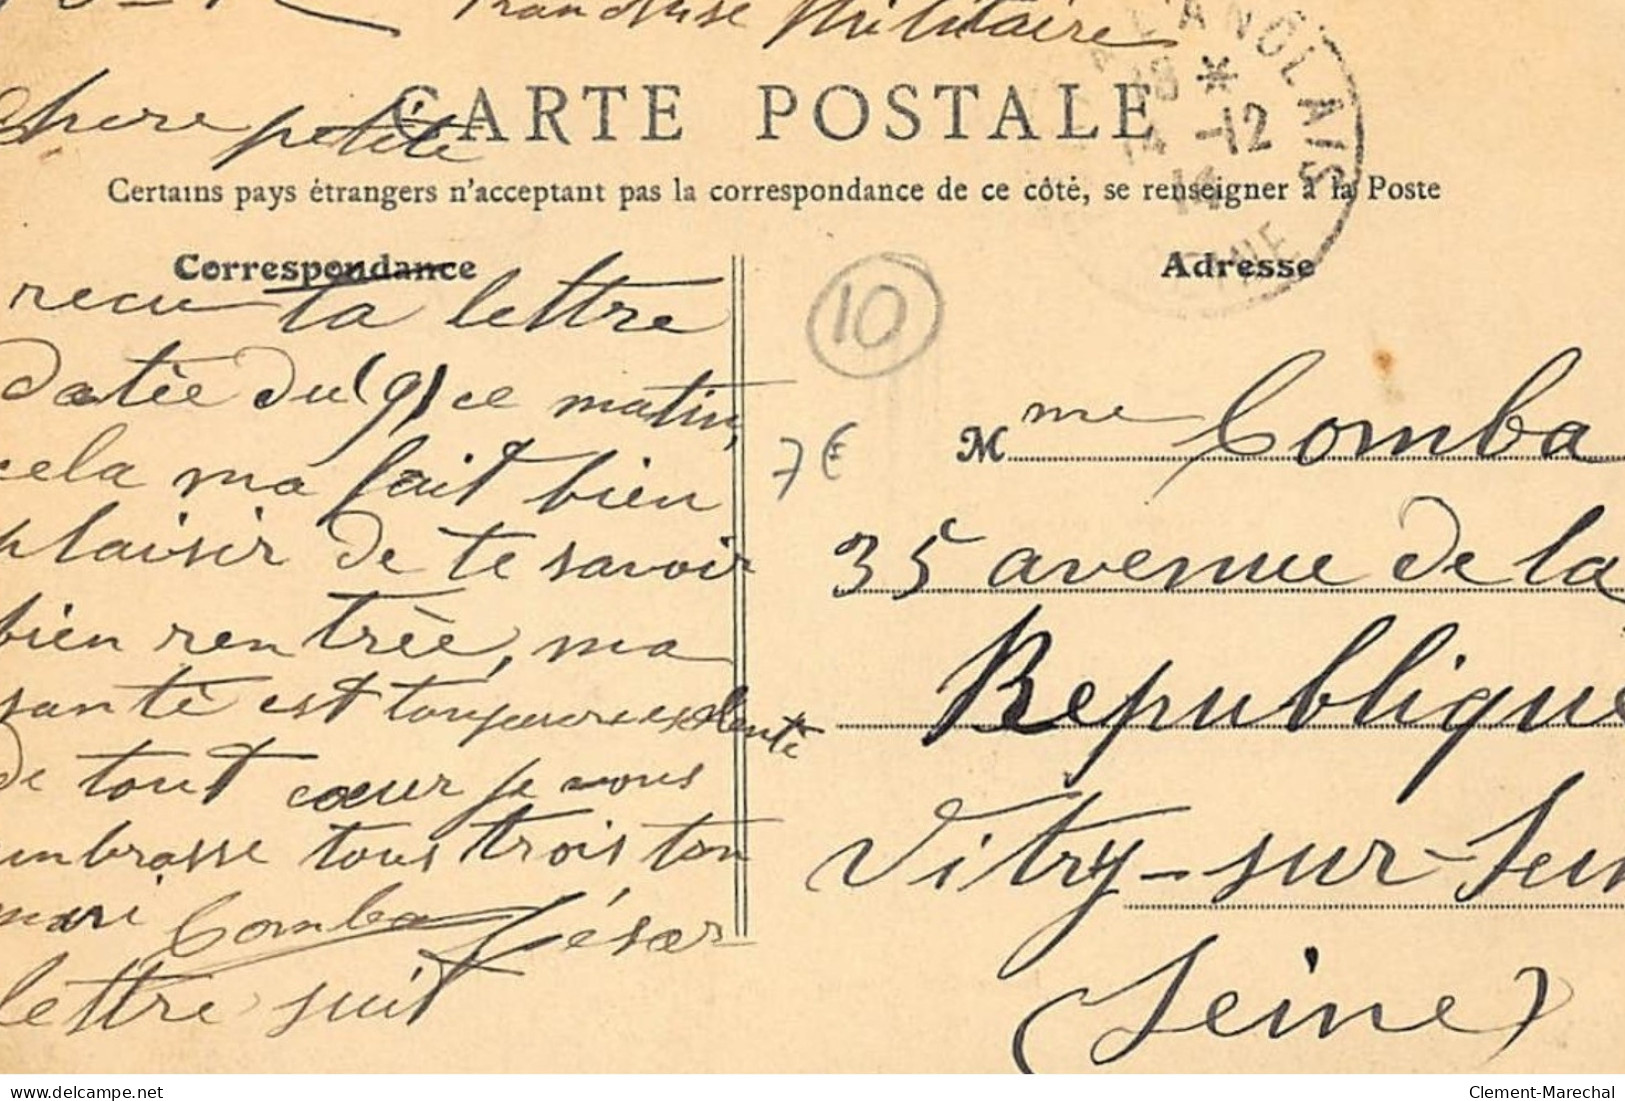 Franchise Militaire
L'ANGLAIS
*
14 -12
14
CARTE POSTALE
Chere petite
Certains pays étrangers n'acceptant pas la correspondance de ce côté, se renseigner à la Poste
Correspondance
recu ta lettre
datée du (9) ce matin,
cela ma fait bien
plaisir de te savoir
bien rentrée, ma
santé est toujours exelente
de tout cœur je vous
embrasse tous trois ton
mari Comba César
lettre suit
10
7€
Adresse
Mme Comba
35 avenue de la
Republique
Vitry-sur-Sein
(Seine)
delcampe.net
Clement-Marechal